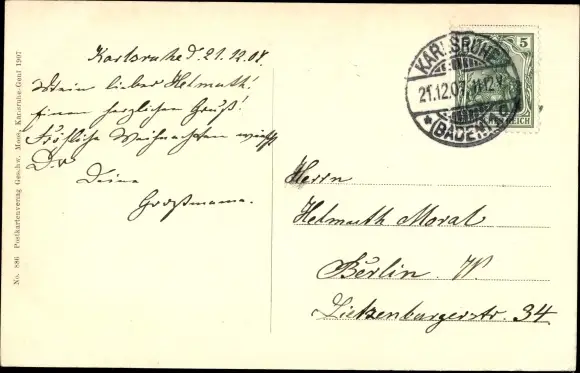 Karlsruhe d. 21.12.07.
Mein lieber Helmuth!
Einen herzlichen Gruß!
Fröhliche Weihnachten wünscht
Dir
Deine
Großmama.
5
KARLSRUHE
21.12.07.
(BADEN)
REICH
Herrn
Helmuth Morat
Berlin. W.
Lietzenburgerstr. 34
No. 886 Postkartenverlag Geschw. Moos, Karlsruhe. Gesl 1907